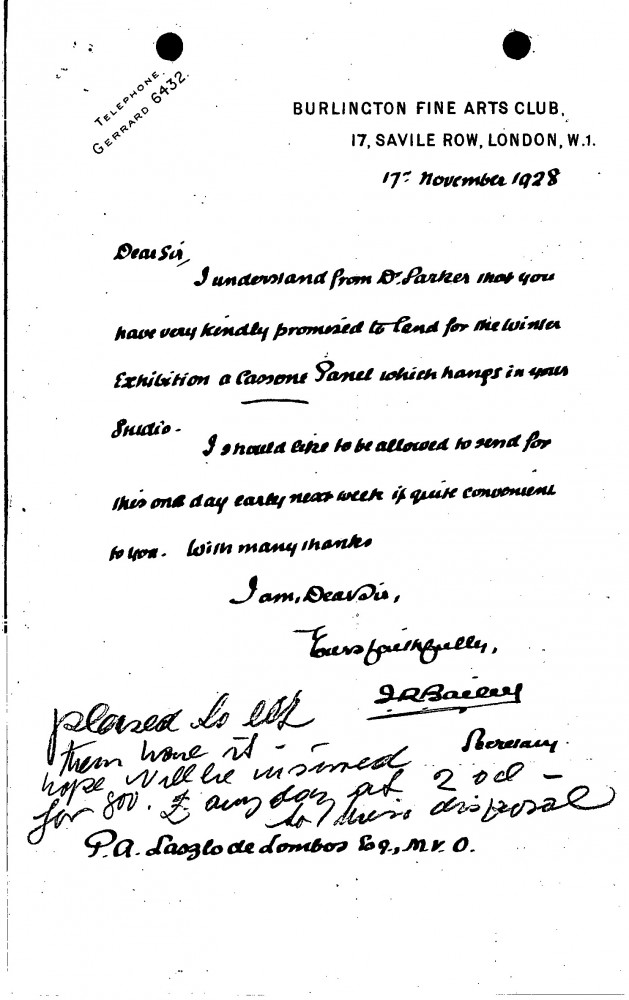 TELEPHONE.
GERRARD 6432.
BURLINGTON FINE ARTS CLUB,
17, SAVILE ROW, LONDON, W.1.
17th November 1928
Dear Sir,
I understand from Dr. Parker that you
have very kindly promised to lend for the Winter
Exhibition a Cassone Panel which hangs in your
Studio.
I should like to be allowed to send for
this one day early next week if quite convenient
to you. With many thanks
I am, Dear Sir,
Yours faithfully,
J R Bailey
Secretary.
pleased to let
them have it -
hope will be insured
for 800. £ any day at 2 ocl -
to their disposal
P. A. Laszlo de Lombos Esq., M.V.O.